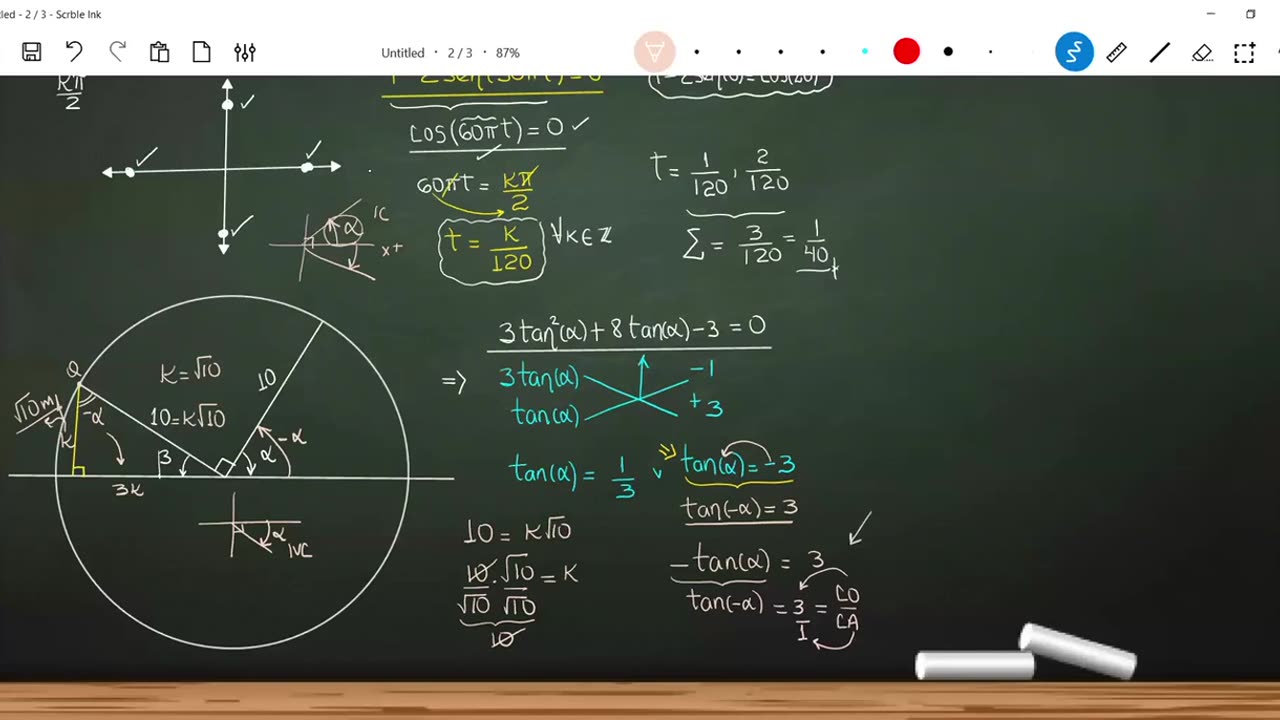 led - 2 / 3 - Scrble Ink
Untitled · 2 / 3 · 87%
kπ/2
cos(60πt) = 0
60πt = kπ/2
t = k/120 ∀k∈ℤ
t = 1/120, 2/120
Σ = 3/120 = 1/40
α
IC
x+
3tan²(α) + 8tan(α) - 3 = 0
=> 3tan(α) -1
tan(α) +3
tan(α) = 1/3 ∨ tan(α) = -3
tan(-α) = 3
-tan(α) = 3
tan(-α) = 3/1 = CO/CA
10 = k√10
10/√10 . √10/√10 = k
10
Q
k = √10
10 = k√10
10
√10 m
-α
k
3k
α
-α
α
IVC